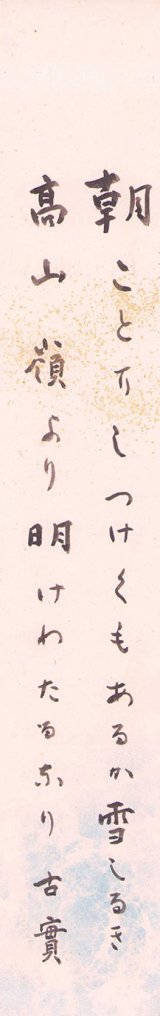 朝ことにしつけくもあるか雪しるき
高山嶺より明けわたるなり 古實